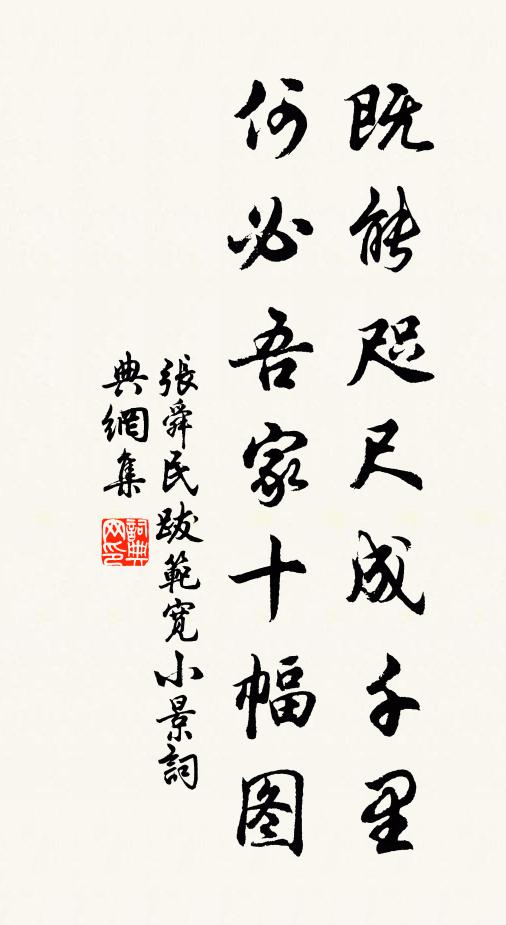 既能咫尺成千里
何必吾家十幅图
張舜民跋範寬小景詞
典網集
詞典网印